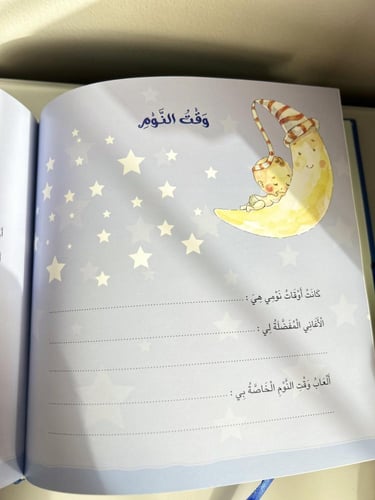 وَقْتُ النَّوْمِ
كَانَتْ أَوْقَاتُ نَوْمِي هِيَ :
الْأَغَانِي الْمُفَضَّلَةُ لِي :
أَلْعَابُ وَقْتِ النَّوْمِ الْخَاصَّةُ بِي :